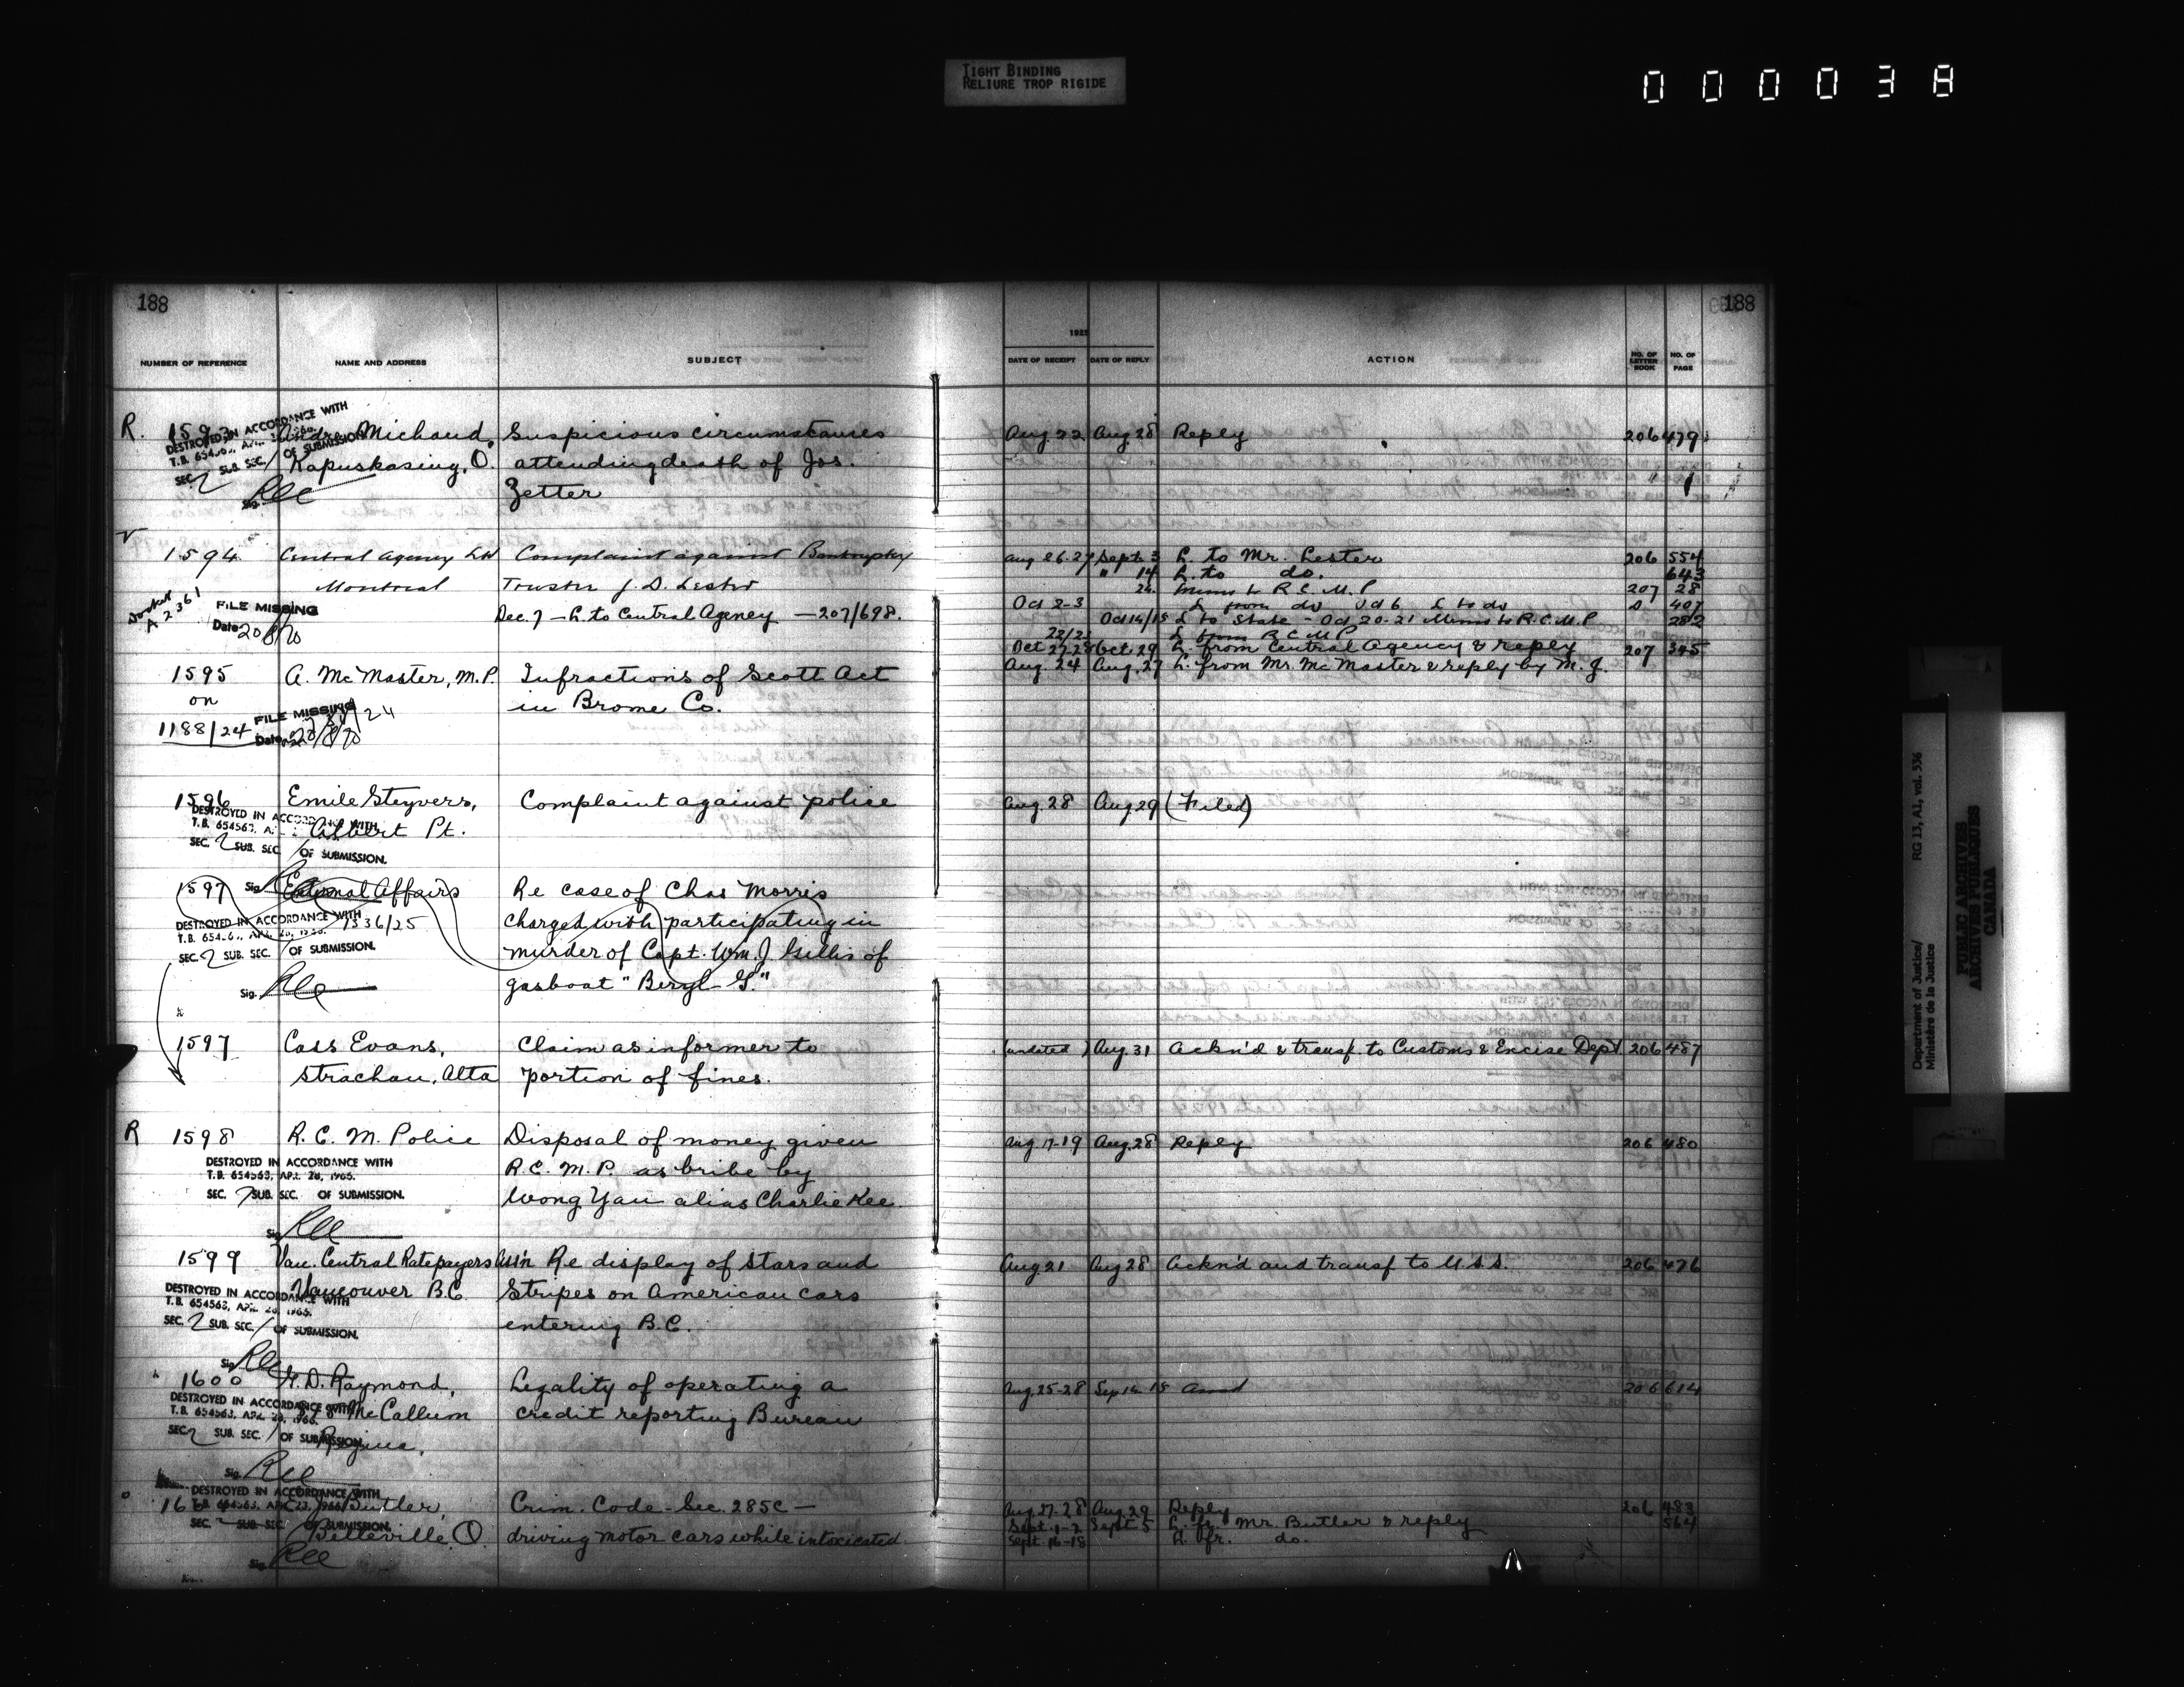 TIGHT BINDING
RELIURE TROP RIGIDE
000038
188
188
1925
NUMBER OF REFERENCE NAME AND ADDRESS SUBJECT DATE OF RECEIPT DATE OF REPLY ACTION NO. OF LETTER BOOK NO. OF PAGE
R. 1593 Andre Michaud, Suspicious circumstances Aug 22 Aug 28 Reply 206 479
DESTROYED IN ACCORDANCE WITH
T.B. 654563, APR. 28, 1966.
SEC. 2 SUB. SEC. 1 OF SUBMISSION
Kapuskasing, O. attending death of Jos.
Sig. Zetter
1594 Central Agency Ltd Complaint against Bankruptcy Aug 26-27 Sept. 3 L. to Mr. Lester 206 554
Montreal Trustee J. D. Lester " 14 L. to do. 643
Docket A 2361
FILE MISSING
Date 20/8/70
Dec. 7 - L. to Central Agency - 207/698.
24. Memo to R.C.M.P 207 28
Oct 2-3 L from do Oct 6 L to do 407
Oct 14/15 L to State - Oct 20-21 Memo to R.C.M.P 282
22/23 L from R C M P
Oct 27-28 Oct. 29 L. from Central Agency & reply 207 345
1595 A. McMaster, M.P. Infractions of Scott Act Aug. 24 Aug. 27 L. from Mr. McMaster & reply by M. J.
on in Brome Co.
1188/24 FILE MISSING
Date 20/8/70
1596 Emile Steyvers, Complaint against police Aug. 28 Aug 29 (Filed)
Albert Pt.
DESTROYED IN ACCORDANCE WITH
T.B. 654563, A
SEC. 2 SUB. SEC. 1 OF SUBMISSION.
Sig.
1597 External Affairs Re case of Chas Morris
1336/25 charged with participating in
DESTROYED IN ACCORDANCE WITH
T.B. 654563, APR. 28, 1966.
SEC. 2 SUB. SEC. 1 OF SUBMISSION.
murder of Capt. Wm. J. Gillis of
Sig. gasboat "Beryl G."
1597 Cass Evans, Claim as informer to (undated) Aug. 31 Ackn'd & transf. to Customs & Excise Dept 206 487
Strachan, Alta portion of fines.
R 1598 R. C. M. Police Disposal of money given Aug 17-19 Aug. 28 Reply 206 480
DESTROYED IN ACCORDANCE WITH
T.B. 654563, APR. 28, 1966.
SEC. 2 SUB. SEC. OF SUBMISSION.
R.C.M.P. as bribe by
Wong Yau alias Charlie Kee.
Sig.
1599 Van. Central Ratepayers Ass'n Re display of Stars and Aug. 21 Aug 28 Ackn'd and transf to U.S.S. 206 476
Vancouver B.C. Stripes on American cars
entering B.C.
DESTROYED IN ACCORDANCE WITH
T.B. 654563, APR. 28, 1966.
SEC. 2 SUB. SEC. 1 OF SUBMISSION.
Sig.
1600 D. Raymond, Legality of operating a Aug. 25-28 Sep 14 15 Ansd 206 614
McCallum credit reporting Bureau
Regina.
DESTROYED IN ACCORDANCE WITH
T.B. 654563, APR. 28, 1966.
SEC. 2 SUB. SEC. 1 OF SUBMISSION.
Sig.
Butler, Crim. Code - Sec. 285C - Aug 27-28 Aug. 29 Reply 206 483
Belleville, O. driving motor cars while intoxicated. Sept. 1-2 Sept 5 L. fr. Mr. Butler & reply 564
Sept. 16-18 L. fr. do.
DESTROYED IN ACCORDANCE WITH
T.B. 654563, APR. 28, 1966.
SEC. SUB. SEC. OF SUBMISSION.
Sig.
Department of Justice/
Ministère de la Justice
RG 13, A1, vol. 336
PUBLIC ARCHIVES
ARCHIVES PUBLIQUES
CANADA